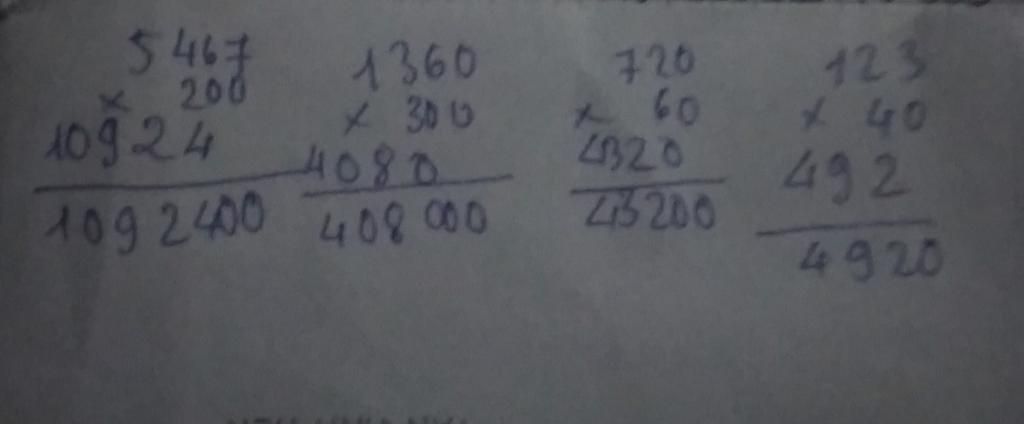 5467 1360 720 123
× 200 × 300 × 60 × 40
10924 4080 4320 492
1092400 408000 43200 4920